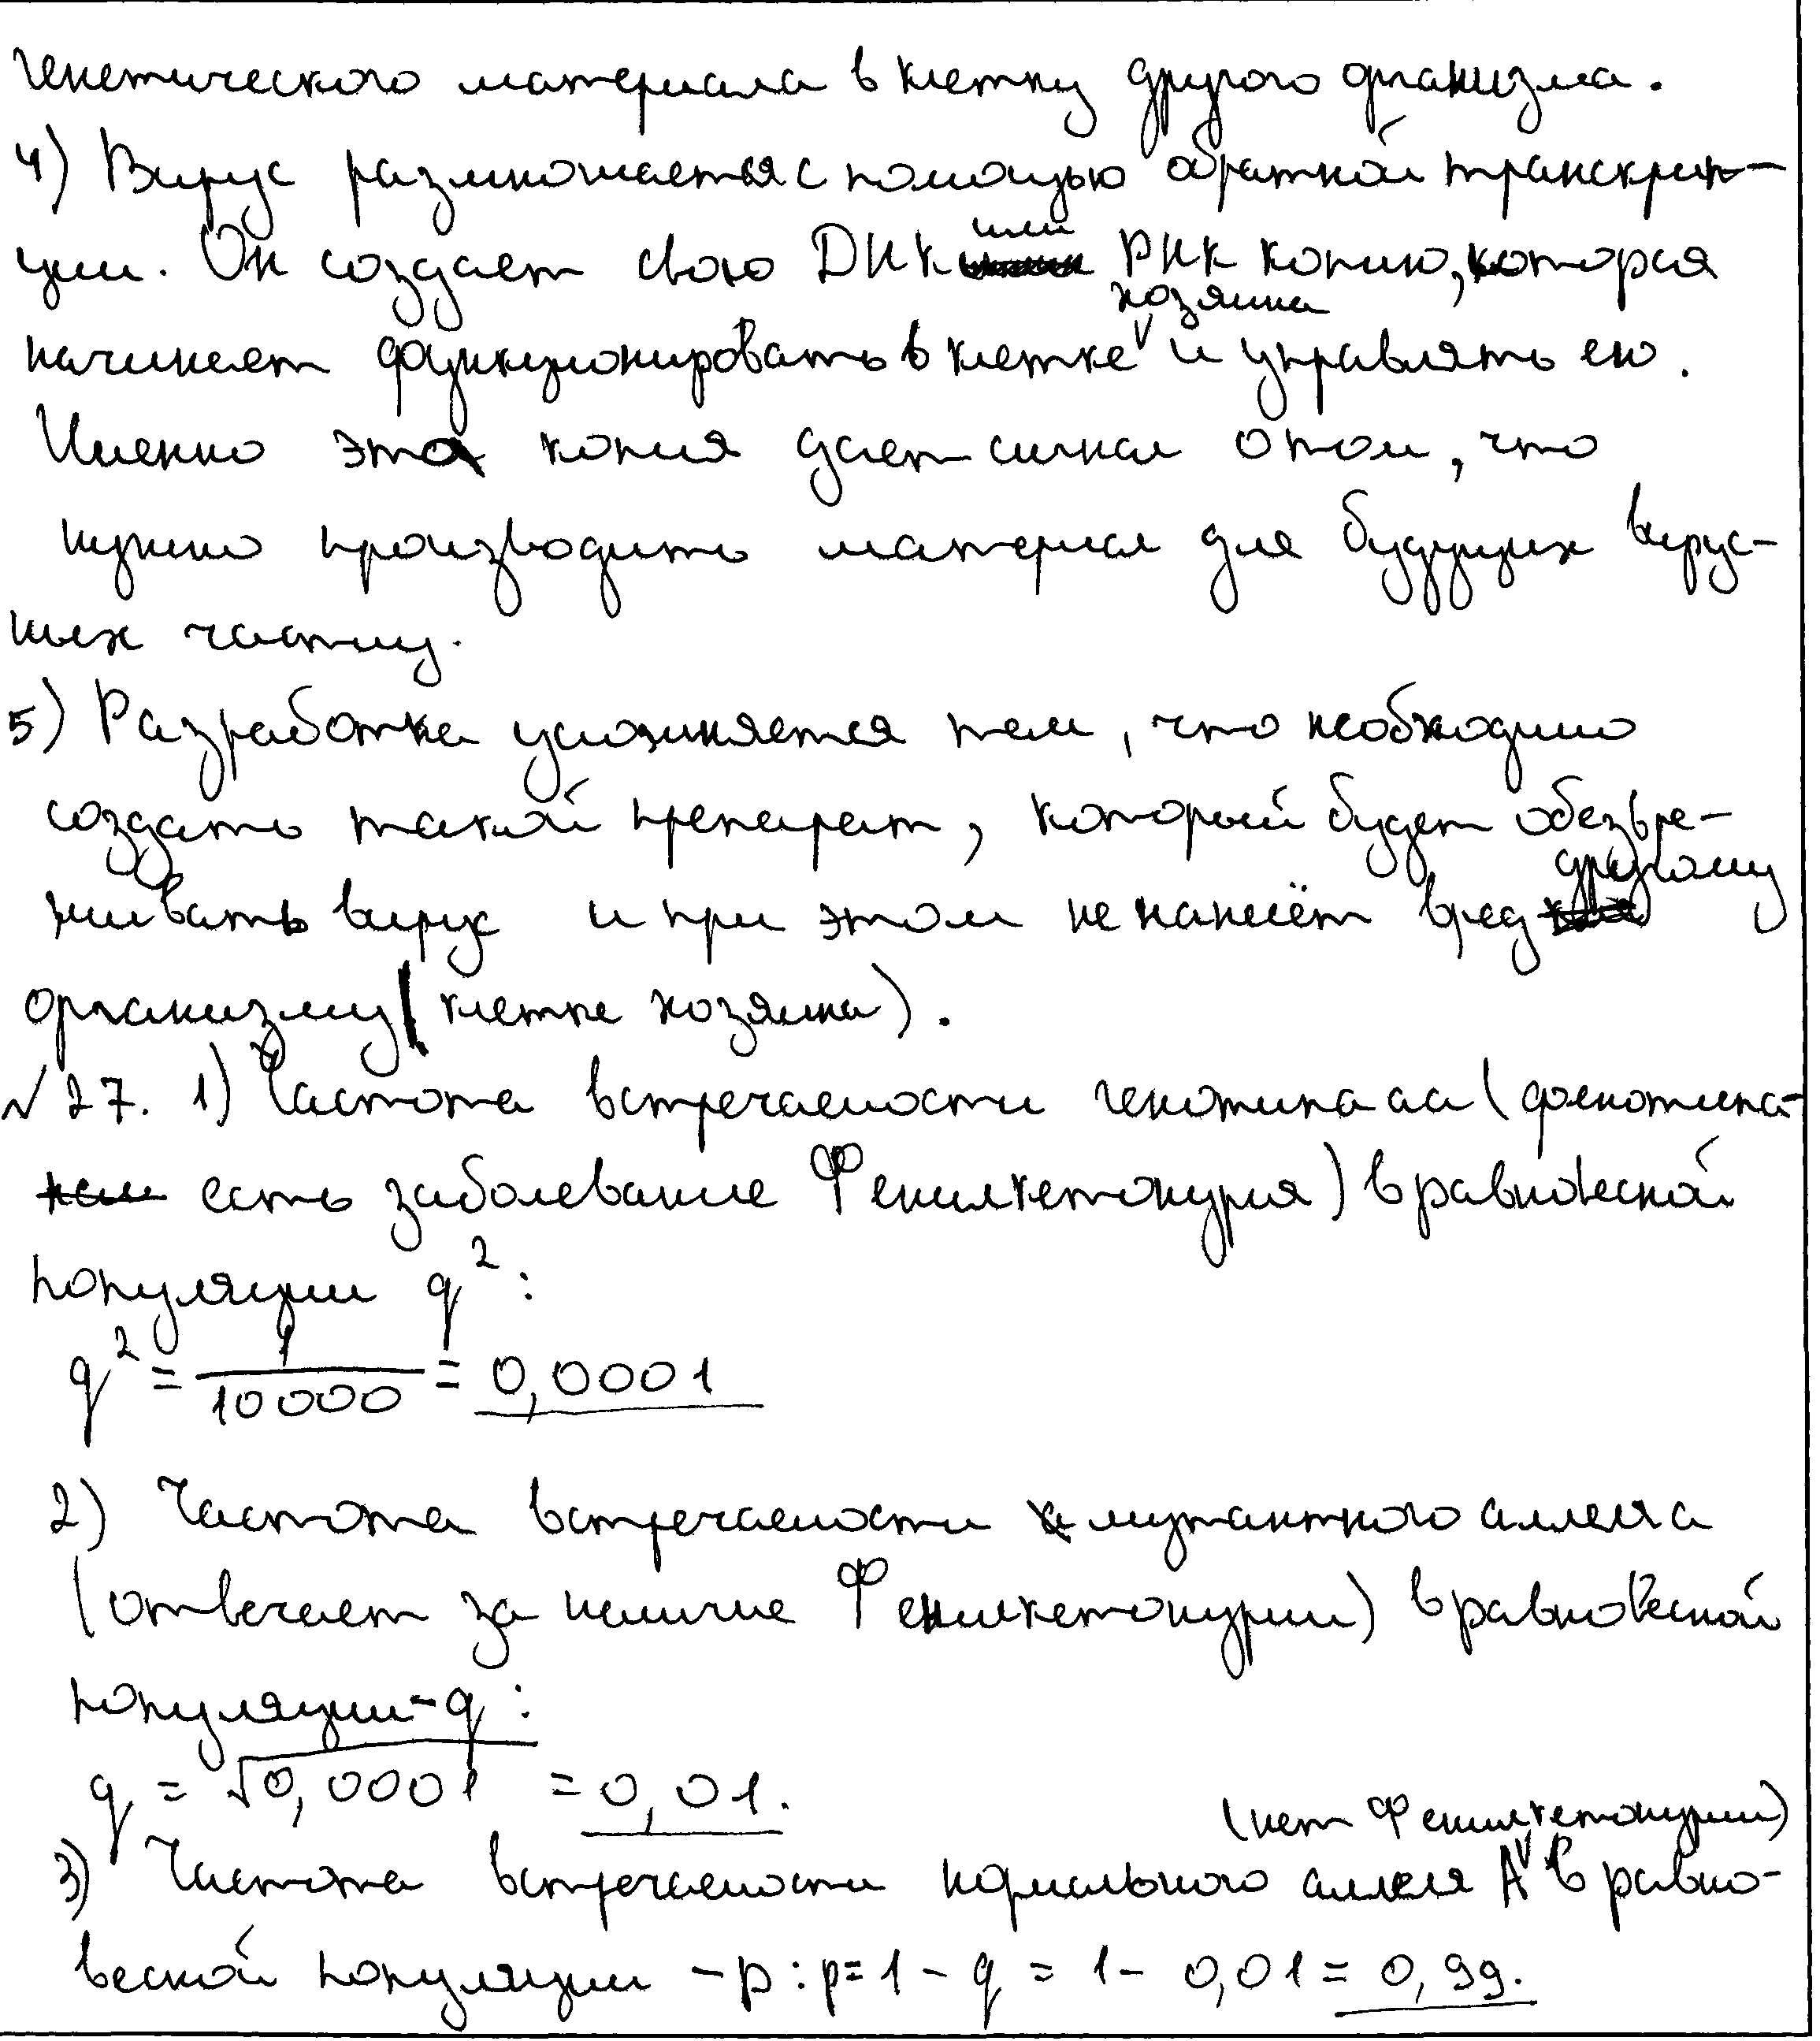 генетического материала в клетку другого организма.
4) Вирус размножается с помощью обратной транскрип-
ции. Он создает свою ДНК или РНК копию, которая
начинает функционировать в клетке хозяина и управлять ею.
Именно эта копия дает сигнал о том, что
нужно производить материал для будущих вирус-
ных частиц.
5) Разработка усложняется тем, что необходимо
создать такой препарат, который будет обезвре-
живать вирус и при этом не нанесёт вред другому
организму (клетке хозяина).
№27. 1) Частота встречаемости генотипа аа (фенотипа-
есть заболевание Фенилкетонурия) в равновесной
популяции q²:
q² = 1/10000 = 0,0001
2) Частота встречаемости мутантного аллеля а
(отвечает за наличие Фенилкетонурии) в равновесной
популяции - q:
q = √0,0001 = 0,01.
3) Частота встречаемости нормального аллеля А (нет Фенилкетонурии) в равно-
весной популяции - p: p = 1 - q = 1 - 0,01 = 0,99.